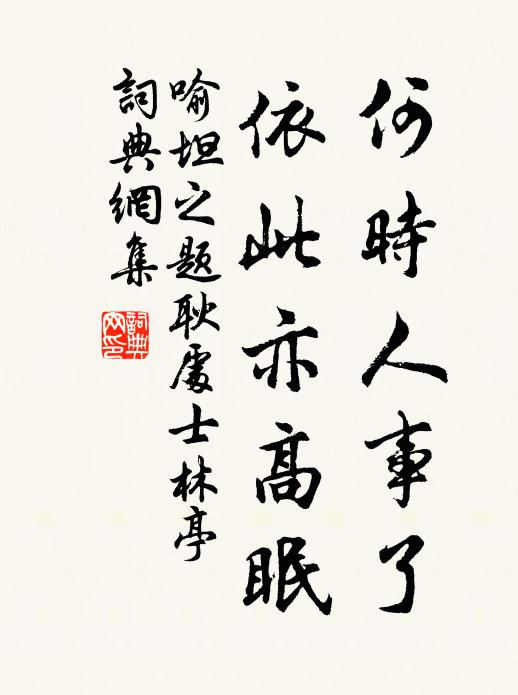 何時人事了
依此亦高眠
喻坦之題耿處士林亭
詞典網集
詞典网印